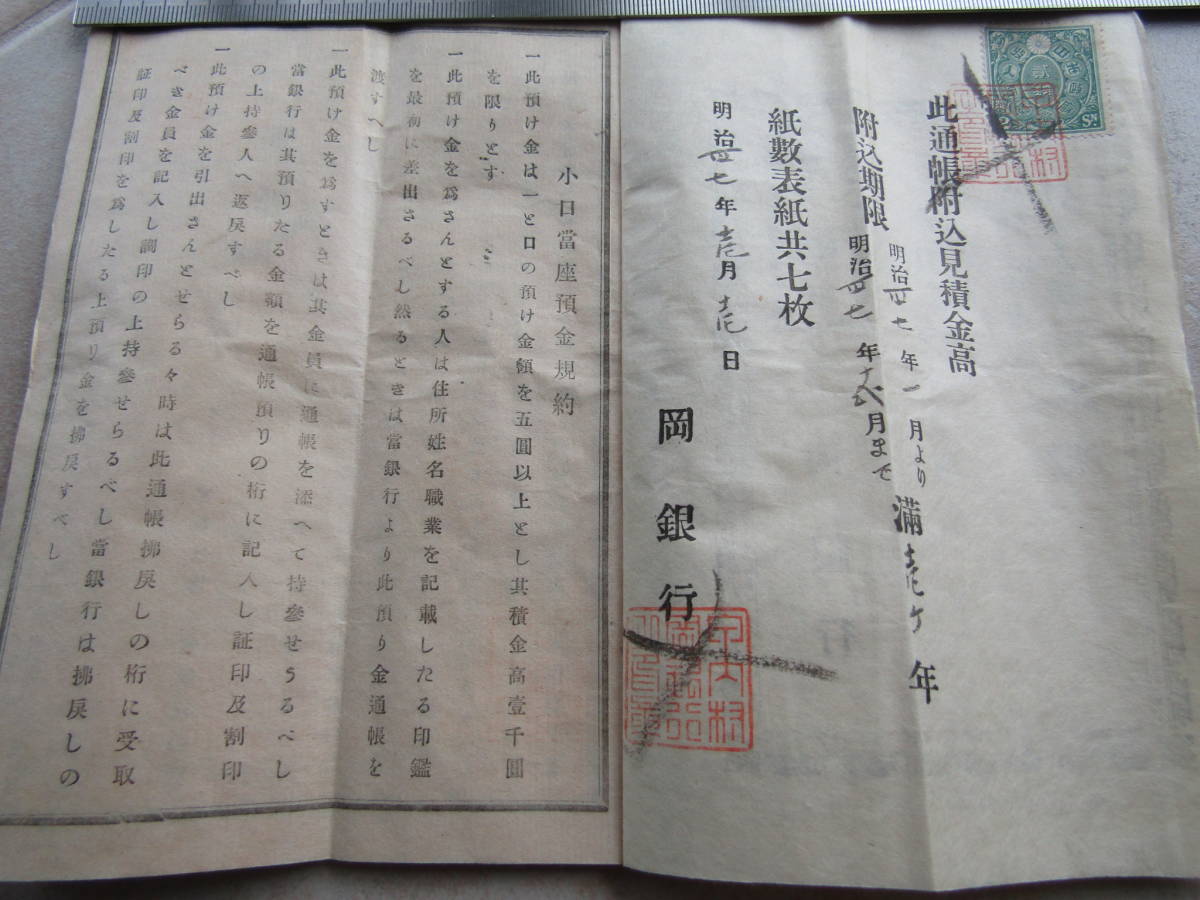 此通帳附込見積金高
附込期限
明治四七年一月より
明治四七年十二月まで
滿壱ケ年
紙數表紙共七枚
明治四七年壱月壱日
岡銀行
小口當座預金規約
一此預け金は一と口の預け金領を五圓以上とし其積金高壹千圓
を限りとす
一此預け金を爲さんとする人は住所姓名職業を記載したる印鑑
を最初に差出さるべし然るときは當銀行より此預り金通帳を
渡すへし
一此預け金を爲すときは其金員に通帳を添へて持參せらるべし
當銀行は其預りたる金額を通帳預リの桁に記入し証印及割印
の上持參人へ返戻すべし
一此預け金を引出さんとせらるゝ時は此通帳拂戻しの桁に受取
べき金員を記入し調印の上持參せらるべし當銀行は拂戻しの
証印及割印を爲したる上預り金を拂戻すべし